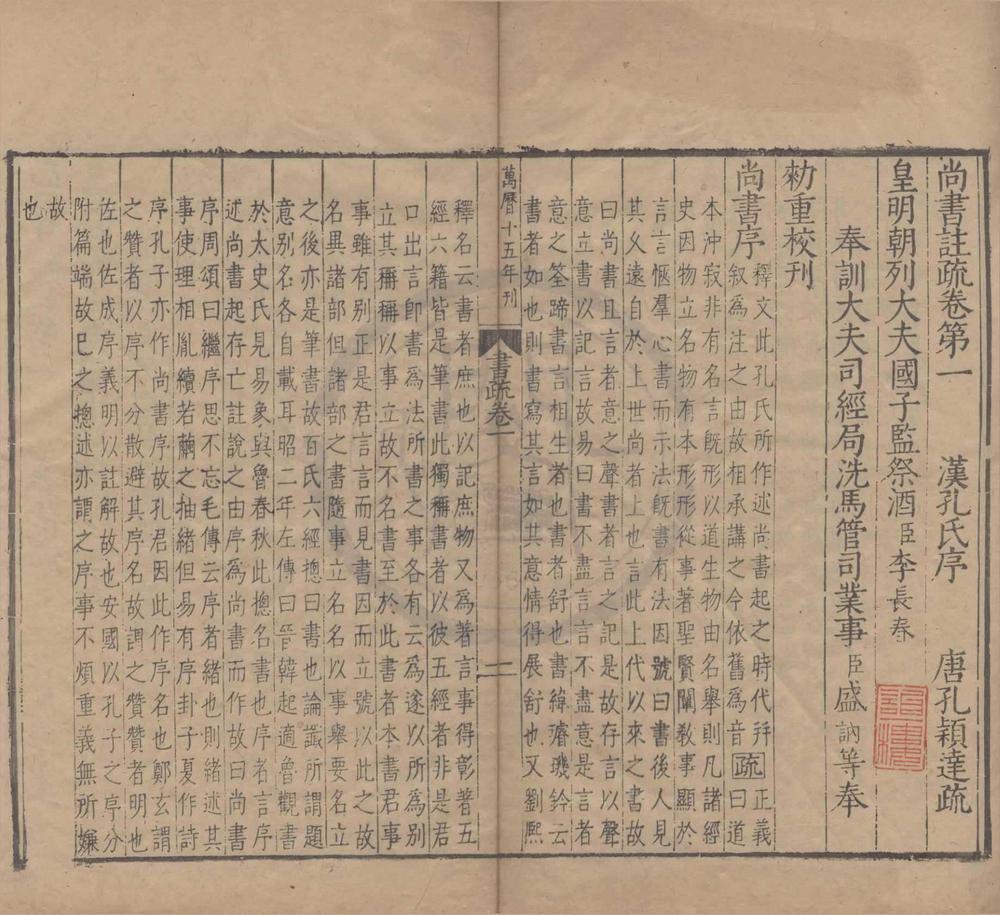 尚書註疏卷第一　漢孔氏序　唐孔穎達疏
皇明朝列大夫國子監祭酒臣李長春
奉訓大夫司經局洗馬管司業事臣盛訥等奉
勑重校刊
尚書序
釋文此孔氏所作述尚書起之時代幷
叙爲注之由故相承講之今依舊爲音
疏
正義
曰道
本沖寂非有名言旣形以道生物由名舉則凡諸經
史因物立名物有本形形從事著聖賢闡敎事顯於
言言愜羣心書而示法旣書有法因號曰書後人見
其久遠自於上世尚者上也言此上代以來之書故
曰尚書且言者意之聲書者言之記是故存言以聲
意立書以記言故易曰書不盡言言不盡意是言者
意之筌蹄書言相生者也書者舒也書緯璿璣鈐云
書者如也則書寫其言如其意情得展舒也又劉熙
萬曆十五年刊
書疏卷一
一
釋名云書者庶也以記庶物又爲著言事得彰著五
經六籍皆是筆書此獨稱書者以彼五經者非是君
口出言卽書爲法所書之事各有云爲遂以所爲別
立其稱稱以事立故不名書至於此書者本書君事
事雖有別正是君言言而見書因而立號以此之故
名異諸部但諸部之書隨事立名名以事舉要名立
之後亦是筆書故百氏六經揔曰書也論讖所謂題
意別名各自載耳昭二年左傳曰晉韓起適魯觀書
於太史氏見易象與魯春秋此揔名書也序者言序
述尚書起存亡註說之由序爲尚書而作故曰尚書
序周頌曰繼序思不忘毛傳云序者緒也則緒述其
事使理相胤續若繭之抽緒但易有序卦子夏作詩
序孔子亦作尚書序故孔君因此作序名也鄭玄謂
之贊者以序不分散避其序名故謂之贊贊者明也
佐也佐成序義明以註解故也安國以孔子之序分
附篇端故已之揔述亦謂之序事不煩重義無所嫌
故
也